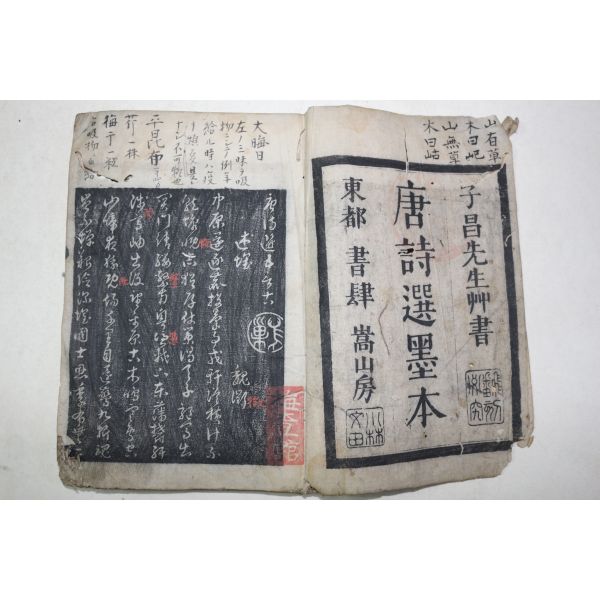 山有草
木曰屺
山無草
木曰岵
子昌先生艸書
唐詩選墨本
東都 書肆 嵩山房
大晦日
左ノ三味ヲ吸
物ニシテ例年
平昆布
芹一株
梅干一粒
述懷 魏徵
中原還逐鹿投筆事戎軒縱橫計不
就慷慨志猶存仗策謁天子驅馬出
關門請纓繫南粤憑軾下東藩鬱紆
陟高岫出沒望平原古木鳴寒鳥空
山啼夜猿既傷千里目還驚九折魂
豈不憚艱險深懷國士恩季布無二